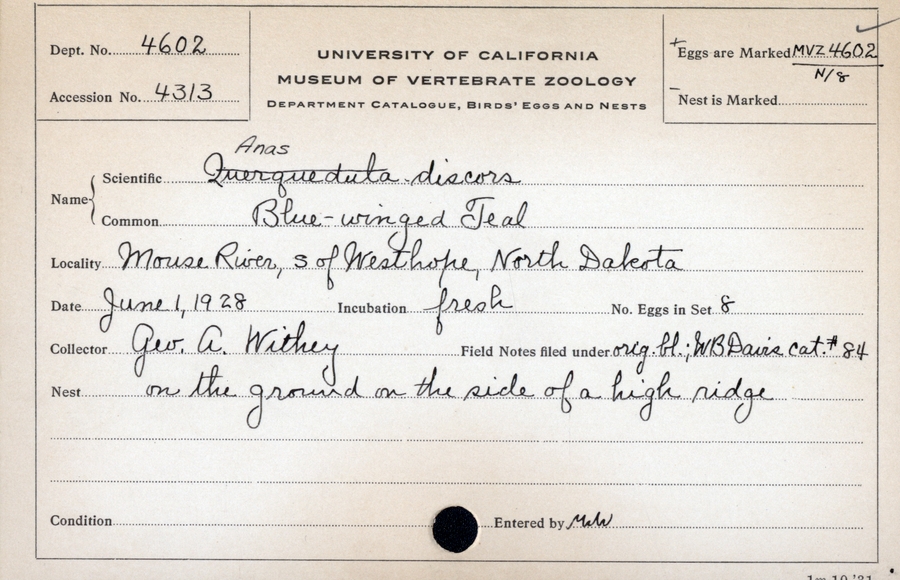 Dept. No. 4602
Accession No. 4313
UNIVERSITY OF CALIFORNIA
MUSEUM OF VERTEBRATE ZOOLOGY
DEPARTMENT CATALOGUE, BIRDS' EGGS AND NESTS
+ Eggs are Marked MVZ4602
N/8
- Nest is Marked
Anas
Name { Scientific Querquedula discors
Common Blue-winged Teal
Locality Mouse River, S of Westhope, North Dakota
Date June 1, 1928 Incubation fresh No. Eggs in Set 8
Collector Geo. A. Withey Field Notes filed under orig. bl.; WB Davis cat. # 84
Nest on the ground on the side of a high ridge
Condition Entered by
1m 10 '31